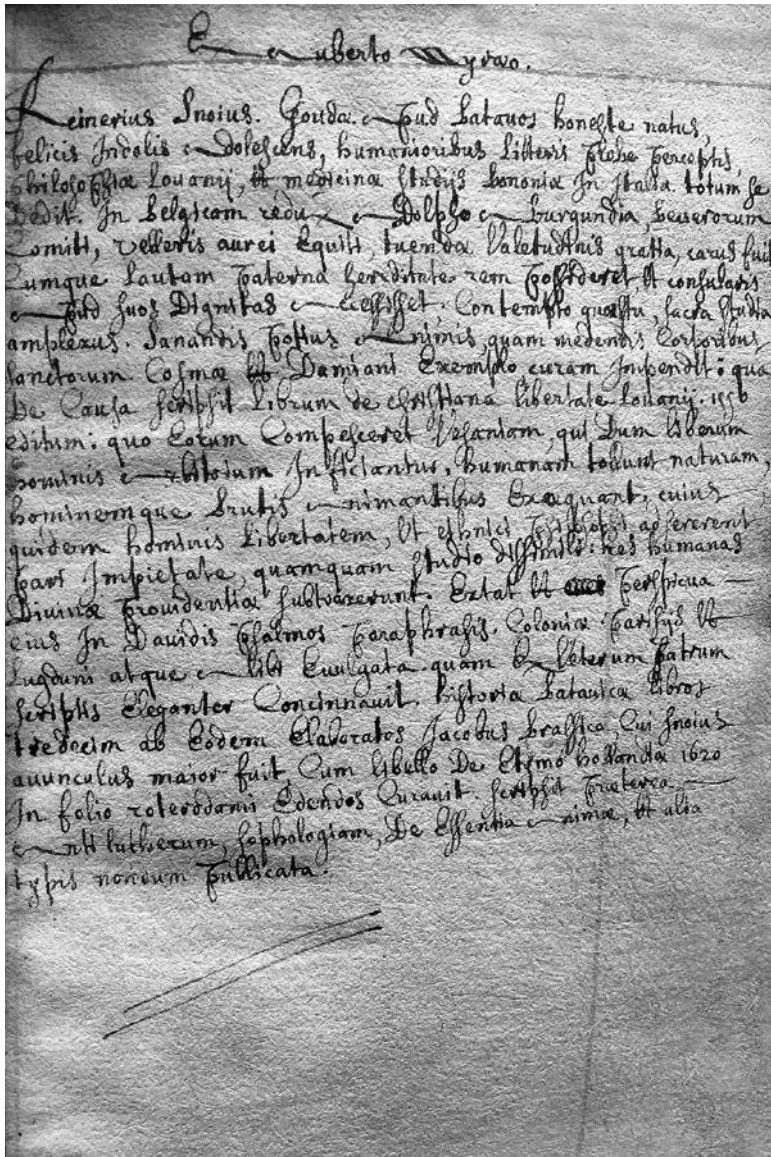 E Auberto Myræo.
Reinerius Snoius. Goudæ Apud Batavos honeste natus,
felicis Indolis Adolescens, humanioribus Litteris probe perceptis,
philosophiæ Lovanij, et medicinæ studijs Bononiæ In Italia totum se
Dedit. In Belgicam redux Adolpho A burgundia, Beverorum
Comiti, Velleris aurei Equiti, tuendæ Valetudinis gratia, carus fuit
Cumque Lautam paterna hereditate rem possideret et consularis
Apud suos Dignitas Accessisset, Contempto quæstu, sacra studia
amplexus. Sanandis potius Animis, quam medendis Corporibus
sanctorum Cosmæ et Damiani Exemplo curam Impendit: qua
De Causa scripsit Librum de christiana libertate Lovanij. 1556
editum: quo Eorum Compesceret Vesaniam, qui Dum liberum
hominis Arbitrium Inficiantur, humanam tollunt naturam,
hominemque brutis Animantibus Exæquant, cuius
quidem hominis Libertatem, Ut ethnici assererent
pari Impietate, quamquam studio dissimili: res humanas
Divinæ providentiæ subtraxerunt. Extat et perspicua
eius In Davidis psalmos paraphrasis. Coloniæ parisijs et
Lugduni atque Alibi Evulgata quam Ex Veterum patrum
scriptis Eleganter Concinnavit. historiæ Batavicæ libros
tredecim ab Eodem Elaboratos Jacobus Brassica, Cui Snoius
avunculus maior fuit, Cum libello De Etymo hollandiæ 1620
In folio roterodami Edendos Curavit. scripsit præterea
Anti lutherum, sophologiam, De Essentia Animæ, et alia
typis nondum publicata.